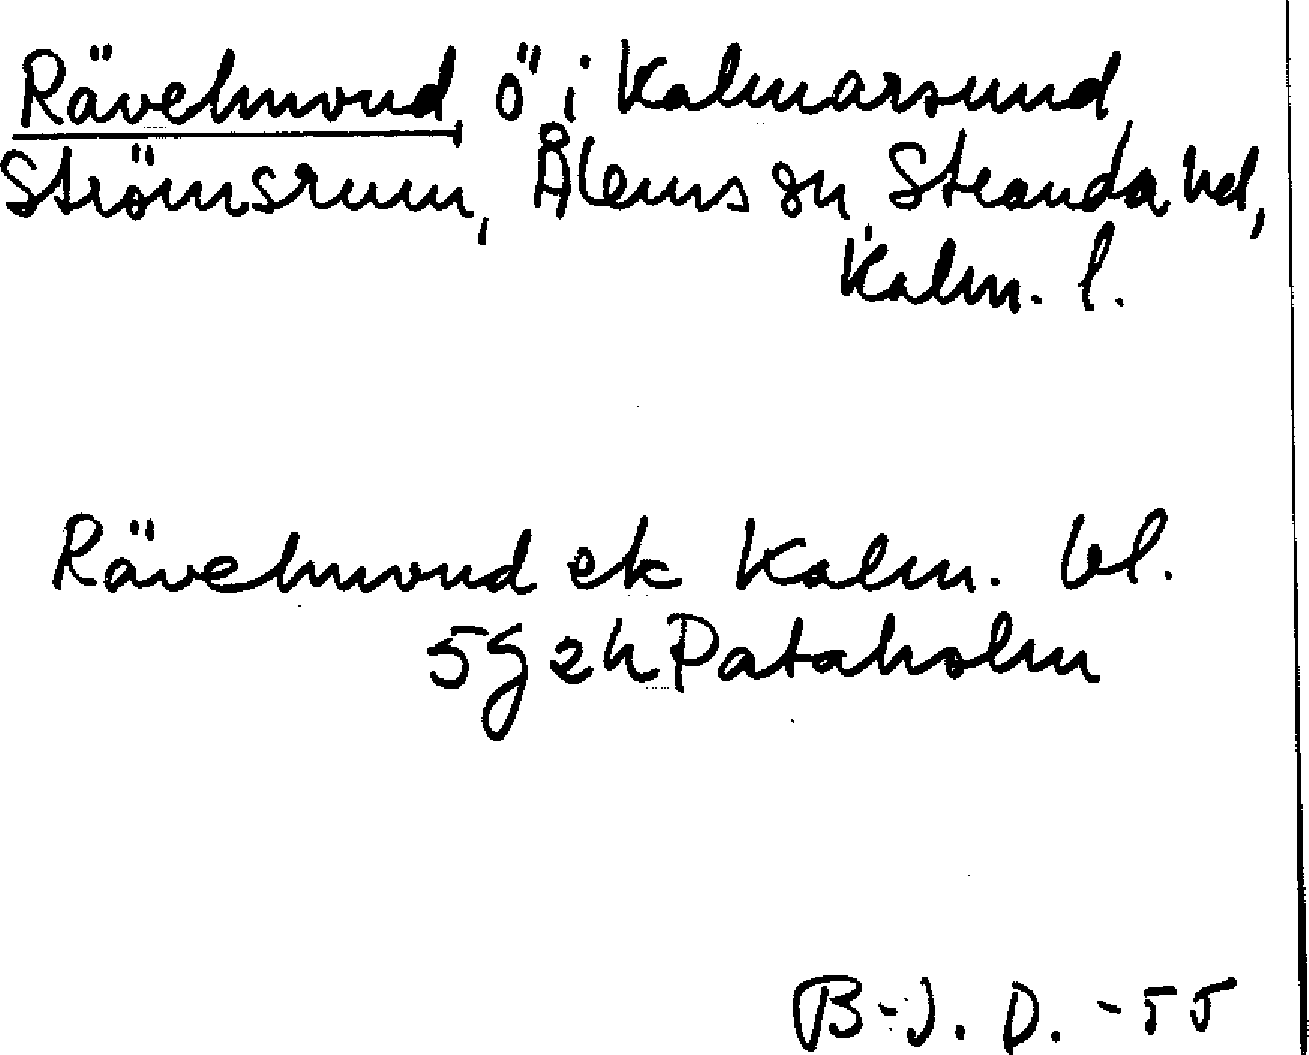 Rävelmond, ö i Kalmarsund,
Strömsrum, Ålems sn, Stranda hd,
Kalm. l.
Rävelmond ek Kalm. bl.
5g 2h Pataholm
B-J. D. -55